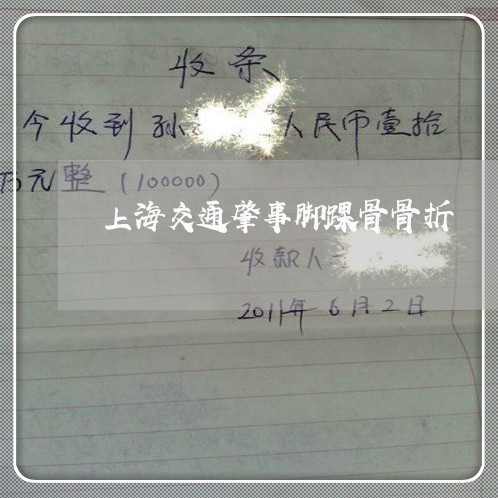 收条
今收到孙 人民币壹拾
万元整(100000)
上海交通肇事脚踝骨骨折
收款人
2011年6月2日